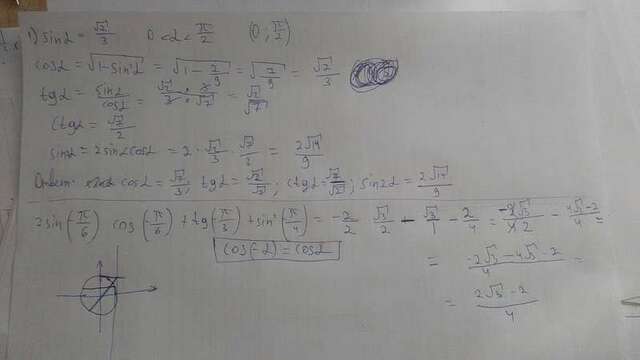 1) sinα = √2/3   0 < α < π/2   (0 ; π/2)
cosα = √1-sin²α = √1 - 2/9 = √7/9 = √7/3
tgα = sinα/cosα = √2/3 · 3/√7 = √2/√7
ctgα = √7/2
sin2α = 2sinαcosα = 2 · √2/3 · √7/3 = 2√14/9
Ответ: cosα = √7/3; tgα = √2/√7; ctgα = √7/√2; sin2α = 2√14/9
2sin(-π/6) cos(-π/6) + tg(-π/3) + sin²(-π/4) = -2/2 √3/2 - √3/1 - 2/4 = -2√3/2 - 4√3-2/4 =
cos(-α) = cosα
= -2√3-4√3-2/4 =
= 2√3-2/4